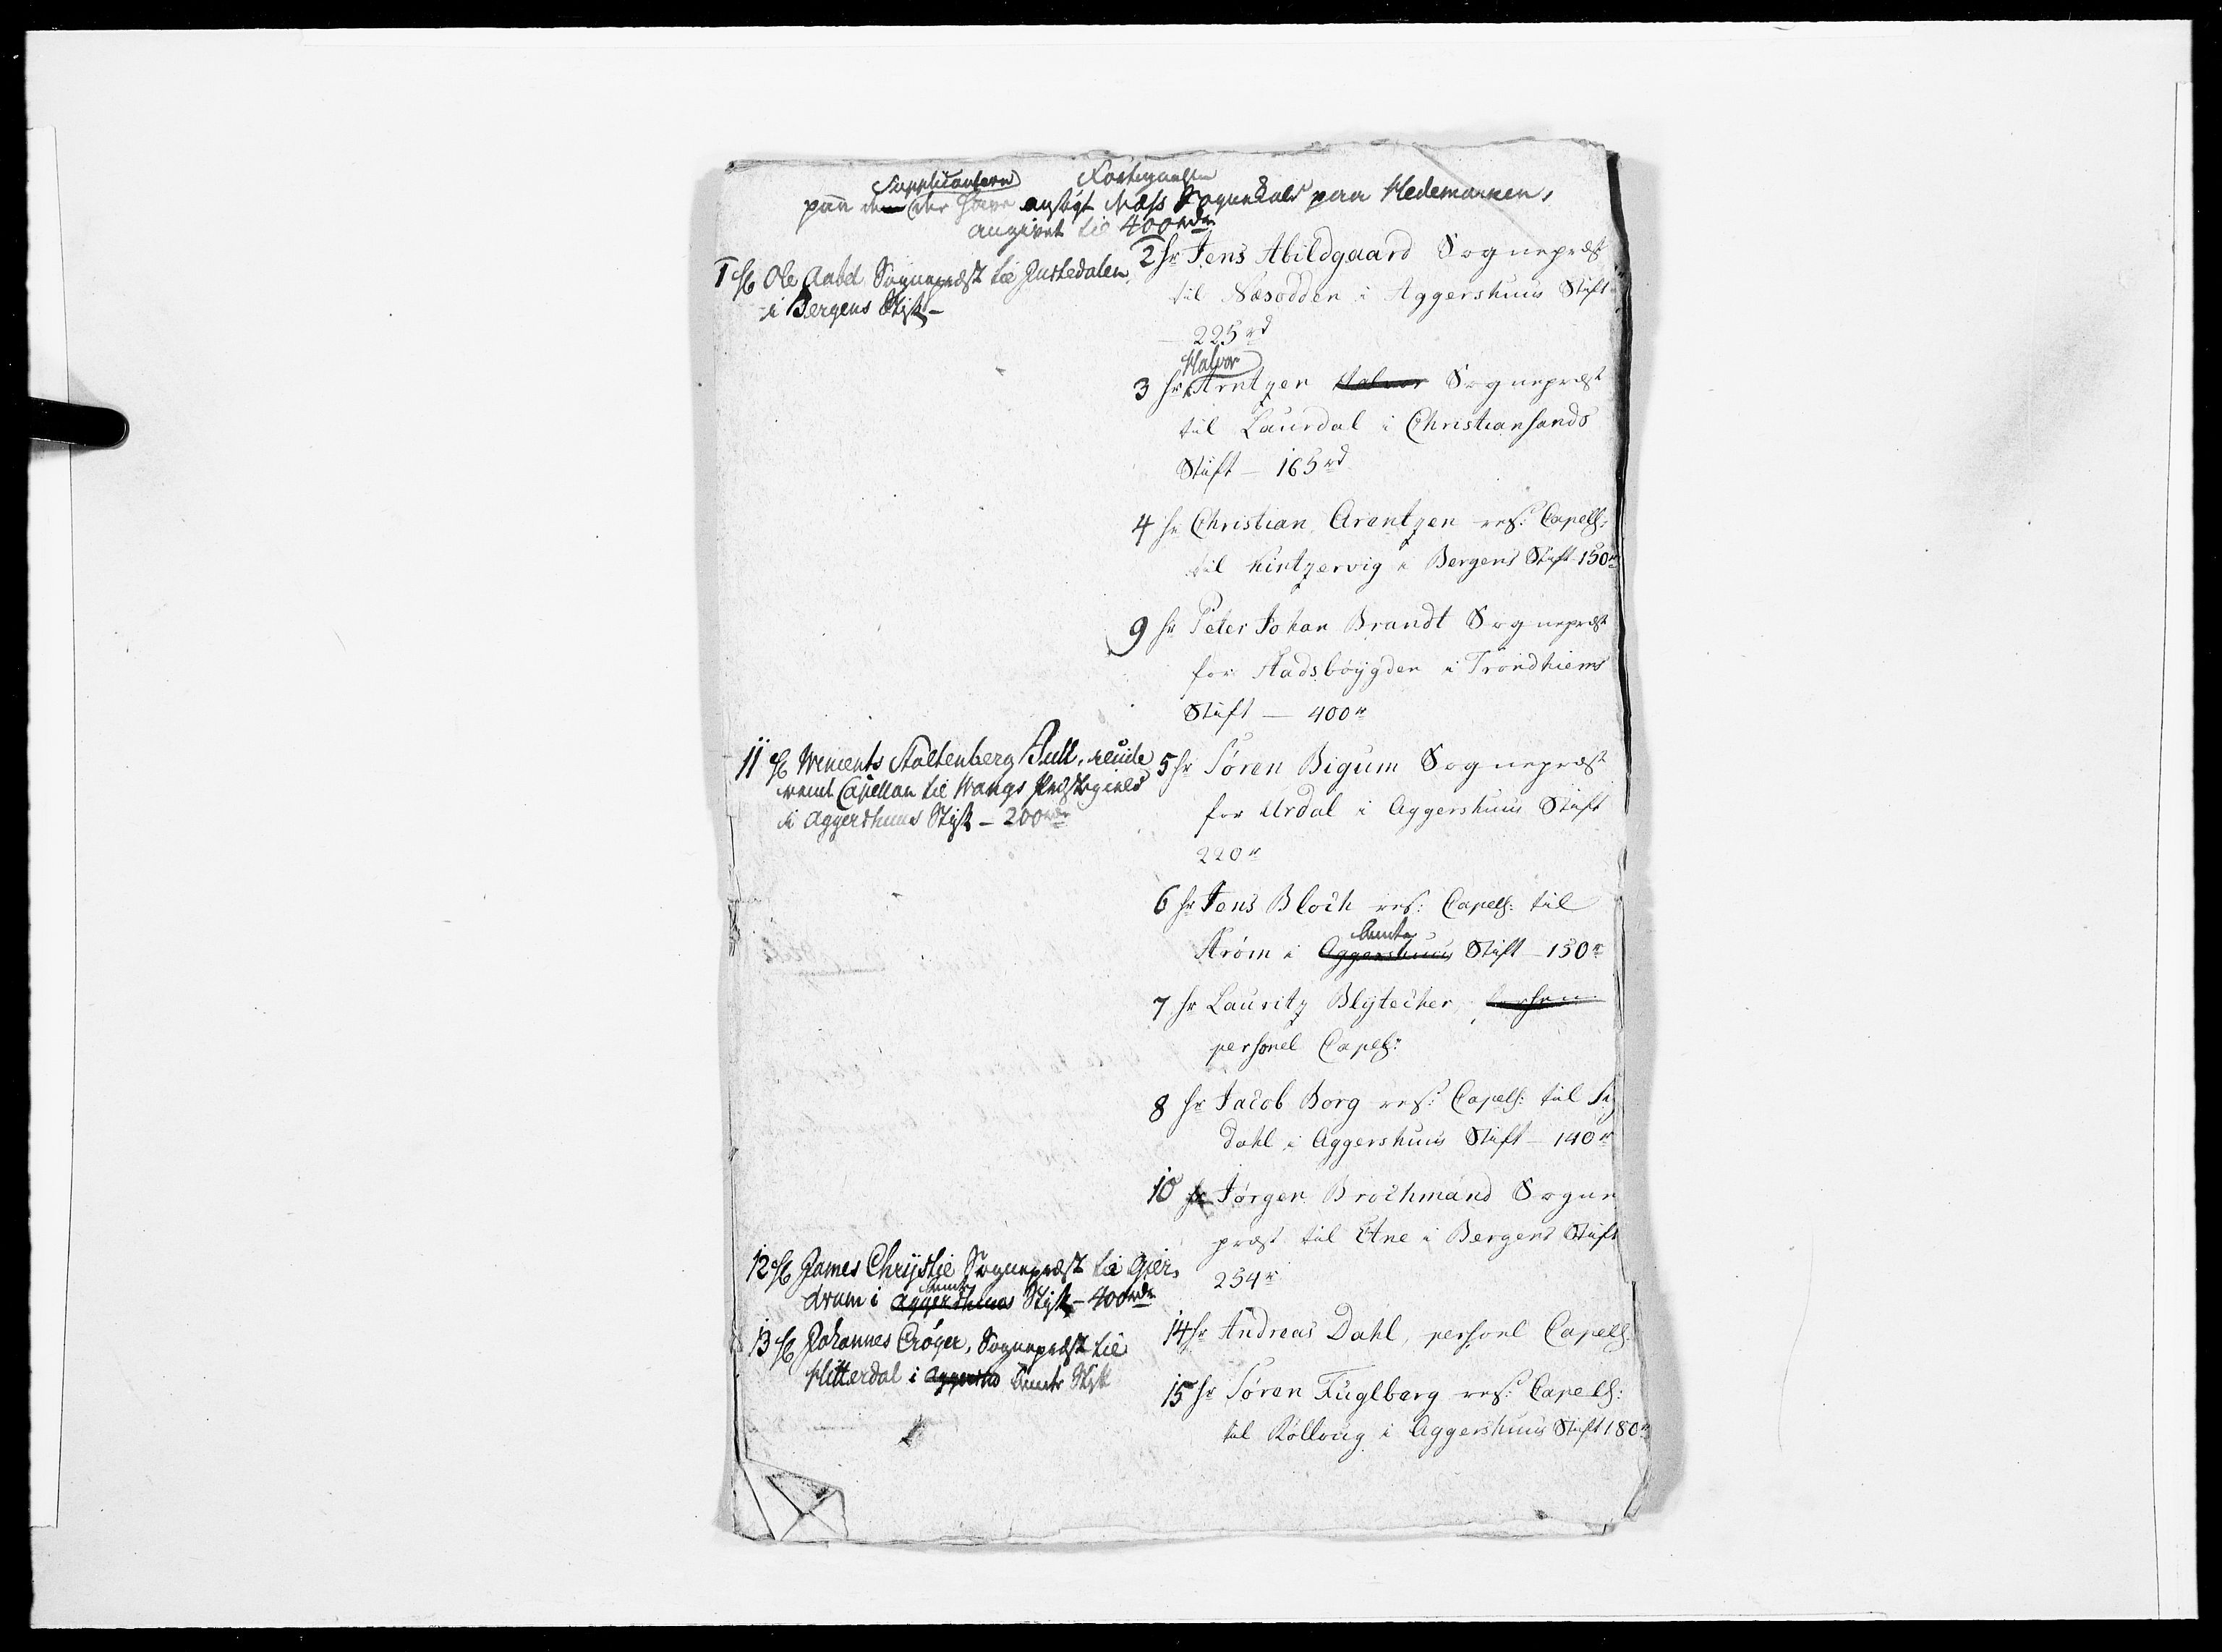 Fortegnelse
paa Supplicantern der have ansøgt Næss Sognekald paa Hedemarken,
angivet til 400 rdr
1 Hr Ole Aabel Sognepræst til Justedalen
i Bergens Stift -
2 hr Jens Abildgaard Sognepræst
til Næsodden i Aggershuus Stift
225 rd
3 hr Halvor Arntzen Halvor Sognepræst
til Laurdal i Christiansands
Stift - 165 rd
4 hr Christian Arentzen res: Capell:
til Kintzervig i Bergens Stift 150 r
9 hr Peter Johan Brandt Sognepræst
for Stadsbøygden i Trondhiems
Stift - 400 r
11 Hr Wincents Stoltenberg Bull, reside
rende Capellan til Wangs Præstegield
i Aggershuus Stift - 200 rdr
5 hr Søren Bigum Sognepræst
for Urdal i Aggershuus Stift
220 r
6 hr Jens Bloch res: Capell: til
Strøm i Aggershuus Stift - 150 r
7 hr Lauritz Blytecher
personel Capell:
8 hr Jacob Borg res: Capell: til Sig
dahl i Aggershuus Stift - 140 r
10 hr Jørgen Brochmand Sogne
præst til Etne i Bergens Stift
254 r
12 Hr James Chrystie Sognepræst til Gier,
drum i Aggershuus Stift - 400 rdr
13 Hr Johannes Crøger, Sognepræst til
Hitterdal i Stift
14 hr Andreas Dahl, personl Capell
15 hr Søren Fuglberg res: Capell:
til Rolloug i Aggershuus Stift 180 r